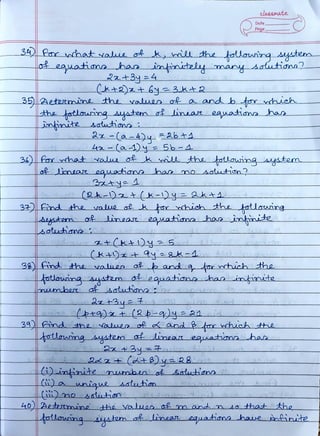 classmate
Date
Page
34) For what value of k, will the following system
of equations has infinitely many solutions?
2x+3y=4
(k+2)x + 6y = 3k+2
35) Determine the values of a and b for which
the following system of linear equations has
infinite solutions:
2x-(a-4)y = 2b+1
4x-(a-1)y = 5b-1
36) For what value of k will the following system
of linear equations has no solution?
3x+y=1
(2k-1)x + (k-1)y = 2k+1
37) Find the value of k for which the following
system of linear equations has infinite
solutions:
x+(k+1)y = 5
(k+1)x + 9y = 8k-1
38) Find the values of p and q for which the
following system of equations has infinite
number of solutions:
2x+3y=7
(p+q)x + (2p-q)y = 21
39) Find the values of α and β for which the
following system of linear equations has
2x+3y=7
2αx + (α+β)y = 28
(i) infinite number of solutions
(ii) a unique solution
(iii) no solution
40) Determine the values of m and n so that the
following system of linear equations have infinite